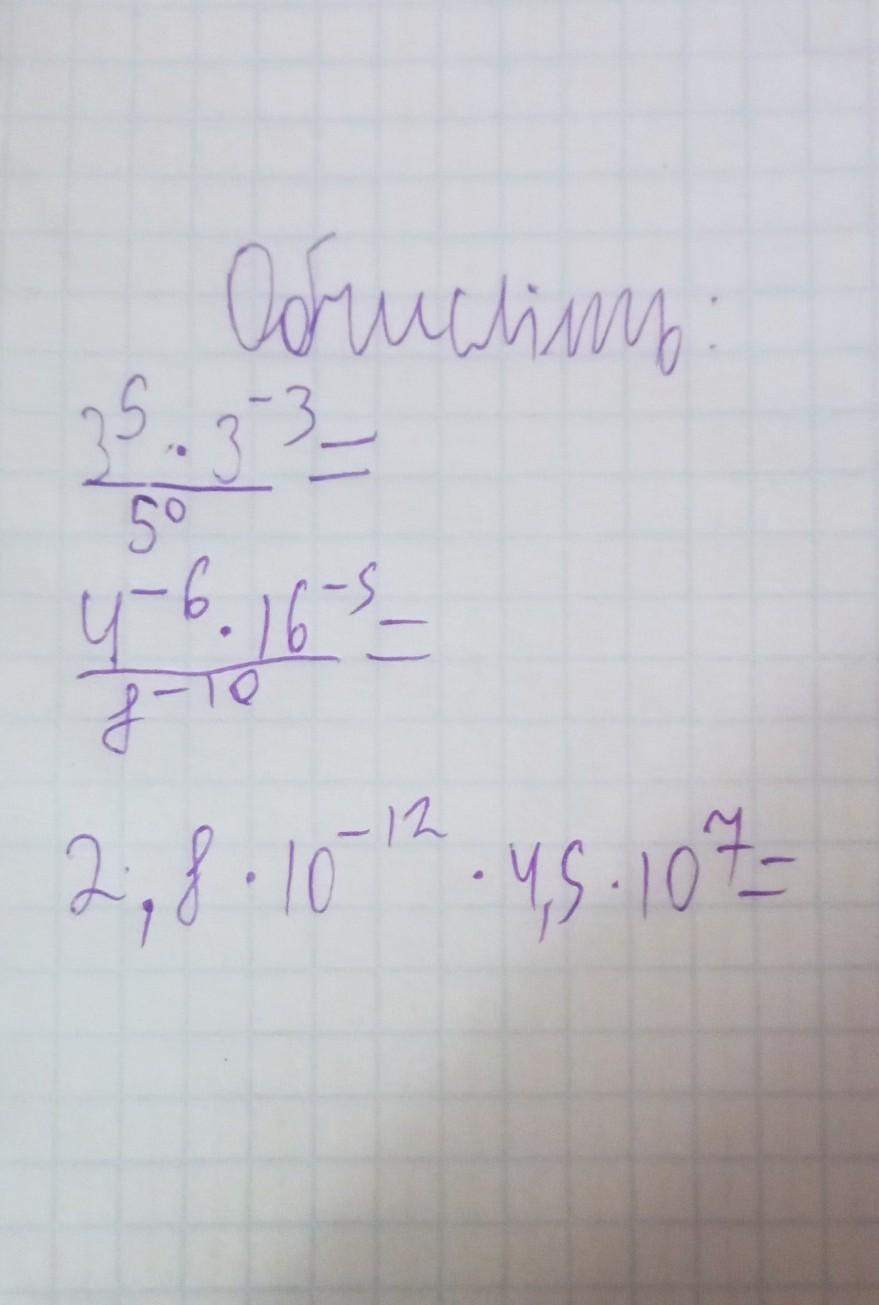 Обчисліть:
3⁵ · 3⁻³ =
5⁰
4⁻⁶ · 16⁻⁵ =
8⁻¹⁰
2,8 · 10⁻¹² · 4,5 · 10⁷ =